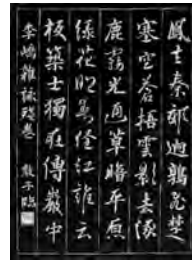 鳳出秦郊迥鶉飛楚
塞空蒼梧雲影去涿
鹿霧光通草暗平原
綠花明徑紅誰云
板築士獨在傅巖中
李嶠雜詠殘卷 子臨